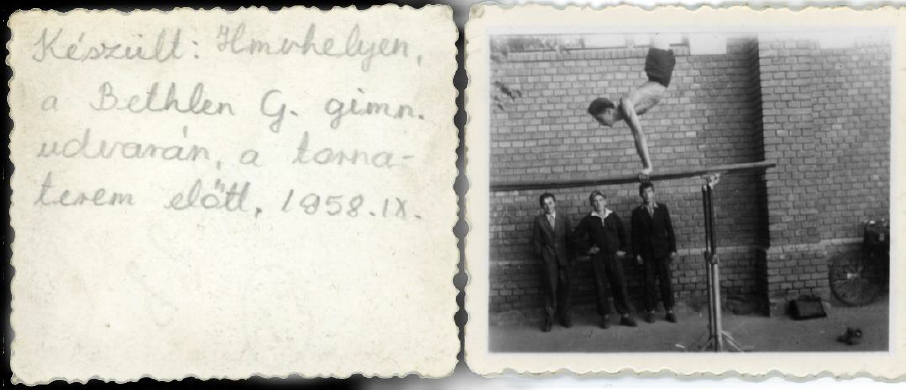 Készült: Hmvhelyen,
a Bethlen G. gimn.
udvarán, a torna-
terem előtt, 1958.IX.